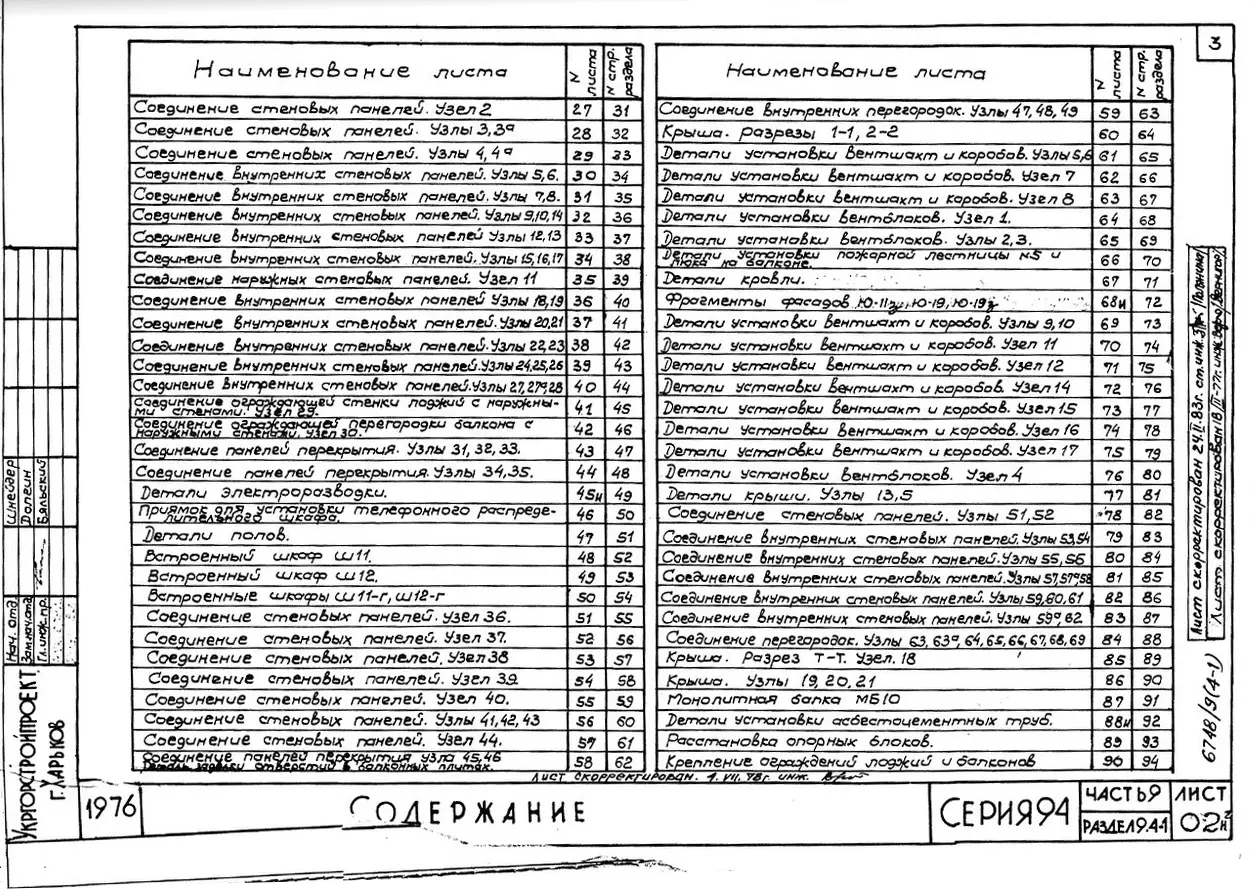 3
Наименование листа N листа N стр. раздела
Соединение стеновых панелей. Узел 2 27 31
Соединение стеновых панелей. Узлы 3,3а 28 32
Соединение стеновых панелей. Узлы 4,4а 29 33
Соединение внутренних стеновых панелей. Узлы 5,6. 30 34
Соединение внутренних стеновых панелей. Узлы 7,8. 31 35
Соединение внутренних стеновых панелей. Узлы 9,10,14 32 36
Соединение внутренних стеновых панелей Узлы 12,13 33 37
Соединение внутренних стеновых панелей. Узлы 15,16,17 34 38
Соединение наружных стеновых панелей. Узел 11 35 39
Соединение внутренних стеновых панелей Узлы 18,19 36 40
Соединение внутренних стеновых панелей. Узлы 20,21 37 41
Соединение внутренних стеновых панелей. Узлы 22,23 38 42
Соединение внутренних стеновых панелей. Узлы 24,25,26 39 43
Соединение внутренних стеновых панелей. Узлы 27,27а,28 40 44
Соединение ограждающей стенки лоджий с наружны-
ми стенами. Узел 29. 41 45
Соединение ограждающей перегородки балкона с
наружными стенами. Узел 30. 42 46
Соединение панелей перекрытия. Узлы 31, 32, 33. 43 47
Соединение панелей перекрытия. Узлы 34, 35. 44 48
Детали электроразводки. 45и 49
Приямок для установки телефонного распреде-
лительного шкафа. 46 50
Детали полов. 47 51
Встроенный шкаф Ш11. 48 52
Встроенный шкаф Ш12. 49 53
Встроенные шкафы Ш11-г, Ш12-г 50 54
Соединение стеновых панелей. Узел 36. 51 55
Соединение стеновых панелей. Узел 37. 52 56
Соединение стеновых панелей. Узел 38 53 57
Соединение стеновых панелей. Узел 39 54 58
Соединение стеновых панелей. Узел 40. 55 59
Соединение стеновых панелей. Узлы 41, 42, 43 56 60
Соединение стеновых панелей. Узел 44. 57 61
Соединение панелей перекрытия узла 45,46
отверстий в балконных плитах. 58 62
Наименование листа N листа N стр. раздела
Соединение внутренних перегородок. Узлы 47, 48, 49 59 63
Крыша. Разрезы 1-1, 2-2 60 64
Детали установки вентшахт и коробов. Узлы 5,6 61 65
Детали установки вентшахт и коробов. Узел 7 62 66
Детали установки вентшахт и коробов. Узел 8 63 67
Детали установки вентблоков. Узел 1. 64 68
Детали установки вентблоков. Узлы 2,3. 65 69
Детали установки пожарной лестницы м5 и
люка на балконе. 66 70
Детали кровли. 67 71
Фрагменты фасадов Ю-11 Ю-19, Ю-19 68и 72
Детали установки вентшахт и коробов. Узлы 9,10 69 73
Детали установки вентшахт и коробов. Узел 11 70 74
Детали установки вентшахт и коробов. Узел 12 71 75
Детали установки вентшахт и коробов. Узел 14 72 76
Детали установки вентшахт и коробов. Узел 15 73 77
Детали установки вентшахт и коробов. Узел 16 74 78
Детали установки вентшахт и коробов. Узел 17 75 79
Детали установки вентблоков. Узел 4 76 80
Детали крыши. Узлы 13,5 77 81
Соединение стеновых панелей. Узлы 51, 52 78 82
Соединение внутренних стеновых панелей. Узлы 53,54 79 83
Соединение внутренних стеновых панелей. Узлы 55,56 80 84
Соединение внутренних стеновых панелей. Узлы 57,57а,58 81 85
Соединение внутренних стеновых панелей. Узлы 59,60,61 82 86
Соединение внутренних стеновых панелей. Узлы 59а, 62 83 87
Соединение перегородок. Узлы 63, 63а, 64, 65, 66, 67, 68, 69 84 88
Крыша. Разрез Т-Т. Узел. 18 85 89
Крыша. Узлы 19, 20, 21 86 90
Монолитная балка МБ10 87 91
Детали установки асбестоцементных труб. 88и 92
Расстановка опорных блоков. 89 93
Крепление ограждений лоджий и балконов 90 94
Лист скорректирован. 1.VII.78г инж.
Лист скорректирован 24.II.83г. ст.инж.
Лист скорректирован 18/II-77г. инж.
6748/9(4-1)
Шнейдер
Долгин
Бяльский
Нач. отд.
Зам.нач.отд.
Гл.инж.пр.
Укргорстройпроект
г. Харьков
1976
Содержание
Серия 94
Часть 9
Раздел 9.4-1
Лист
02